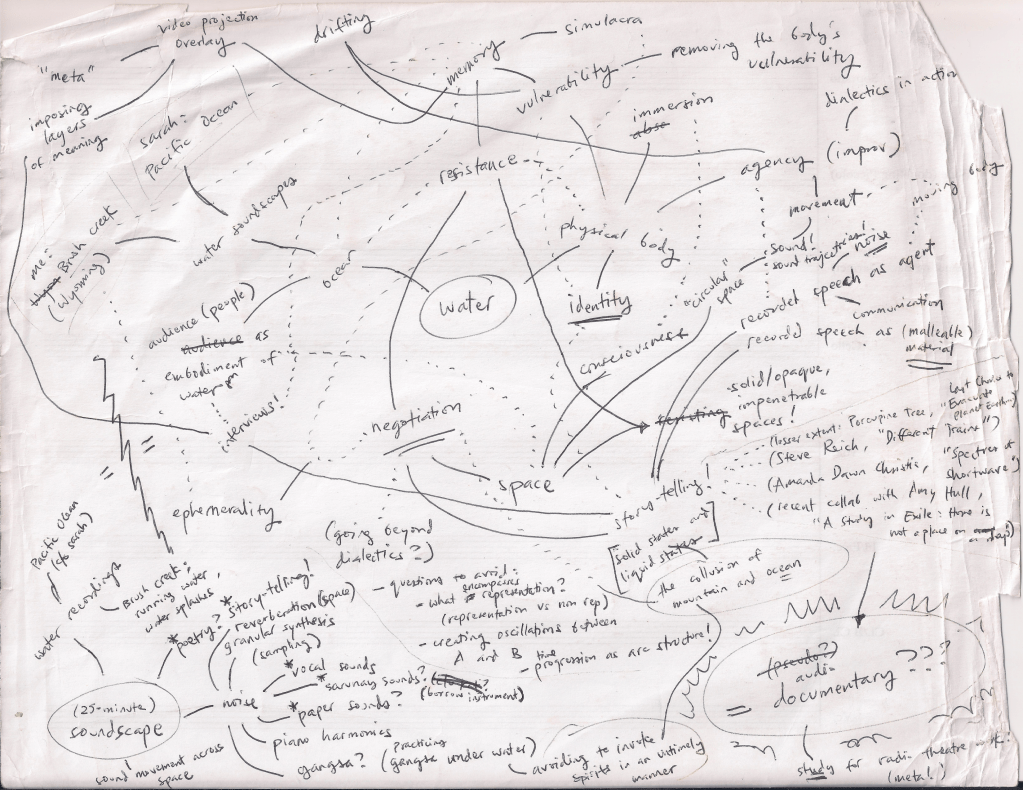 video projection
overlay
drifting
memory
simulacra
"meta"
vulnerability
removing the body's
vulnerability
imposing
layers
of meaning
sarah:
Pacific Ocean
immersion
dialectics in action
resistance
agency (improv)
me:
Brush creek
(Wyoming)
water soundscapes
ocean
water
physical body
identity
movement
moving body
sound!
sound trajectories!
noise
"circular"
space
recorded speech as agent
communication
record speech as (malleable)
material
audience (people)
audience as
embodiment of
water
interviews!
consciousness
solid/opaque,
impenetrable
spaces!
negotiation
space
ephemerality
story-telling!
(lesser extent: Porcupine Tree, "Last Chance to
Evacuate
Planet Earth")
(Steve Reich, "Different Trains")
(Amanda Dawn Christie, "Spectres of
Shortwave")
(recent collab with Amy Hull,
"A Study in Exile: Home is
not a place on a map")
[solid states and
liquid states]
the collusion of
mountain and ocean
(going beyond
dialectics?)
- questions to avoid:
- what encompasses representation?
(representation vs non rep)
- creating oscillations between
A and B
- progression as arc structure!
Pacific Ocean
(c/o sarah)
water recordings
Brush creek:
running water,
water splashes
*poetry?
*story-telling!
reverberation (space)
granular synthesis
(sampling)
*vocal sounds
*sarunay sounds?
(borrow instrument)
*paper sounds?
noise
piano harmonics
gangsa?
Practicing
(gangsa under water)
avoiding to invoke
spirits in an untimely
manner
(25-minute)
soundscape
sound movement across
space
(pseudo?)
audio
documentary ???
study for radio theatre work!
(meta!)